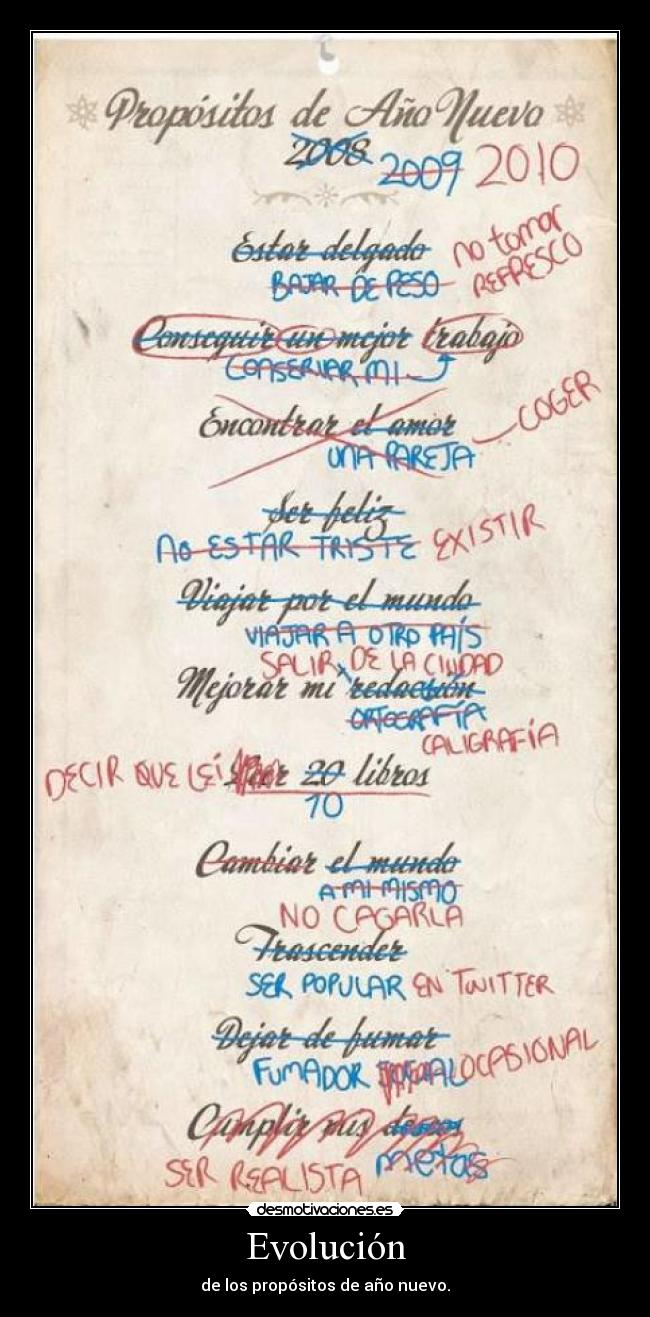 Propósitos de Año Nuevo
2008 2009 2010
Estar delgado no tomar
BAJAR DE PESO REFRESCO
Conseguir un mejor trabajo
CONSERVAR MI
Encontrar el amor COGER
UNA PAREJA
Ser feliz
NO ESTAR TRISTE EXISTIR
Viajar por el mundo
VIAJAR A OTRO PAÍS
SALIR DE LA CIUDAD
Mejorar mi redacción
ORTOGRAFÍA
CALIGRAFÍA
DECIR QUE LEÍ Leer 20 libros
10
Cambiar el mundo
A MI MISMO
NO CAGARLA
Trascender
SER POPULAR EN TWITTER
Dejar de fumar
FUMADOR SOCIAL OCASIONAL
Cumplir mis deseos
SER REALISTA metas
desmotivaciones.es
Evolución
de los propósitos de año nuevo.